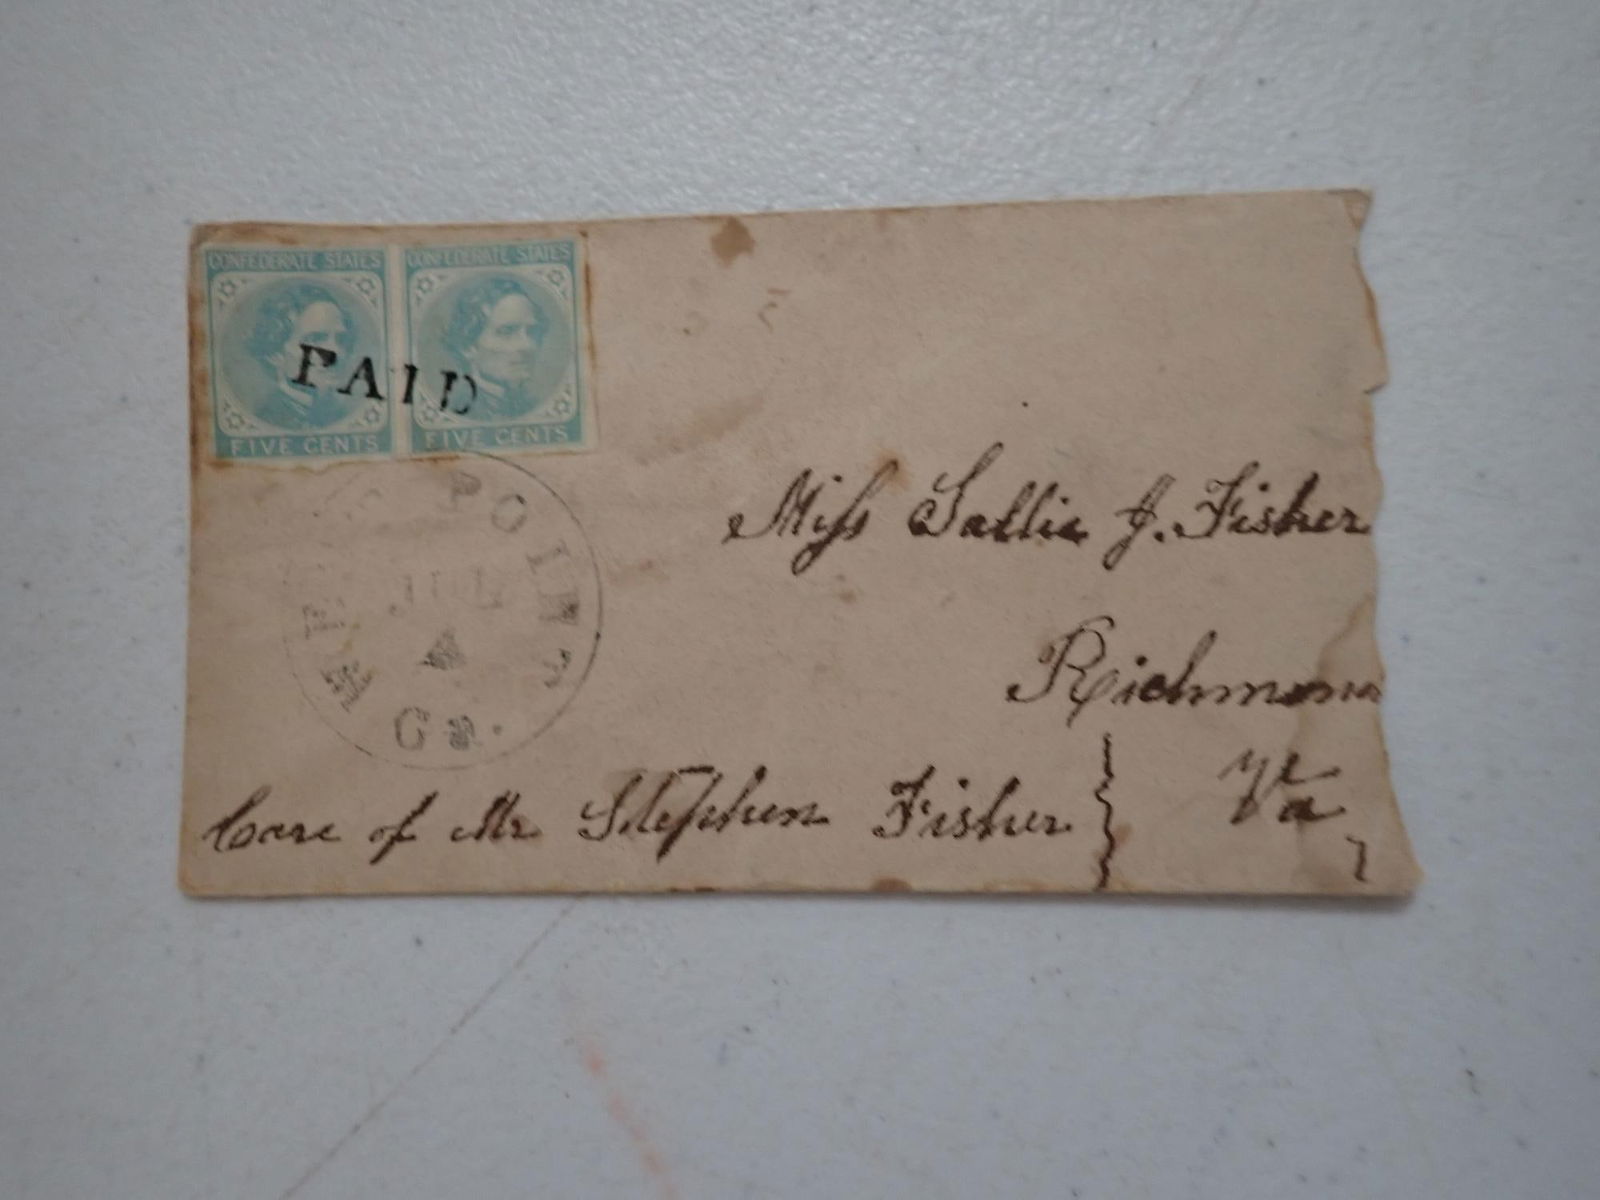 CONFEDERATE STATES CONFEDERATE STATES
PAID
FIVE CENTS FIVE CENTS
POINT
JUL
4
Ga.
Miss Sallie J. Fisher
Richmond
Va
Care of Mr Stephen Fisher